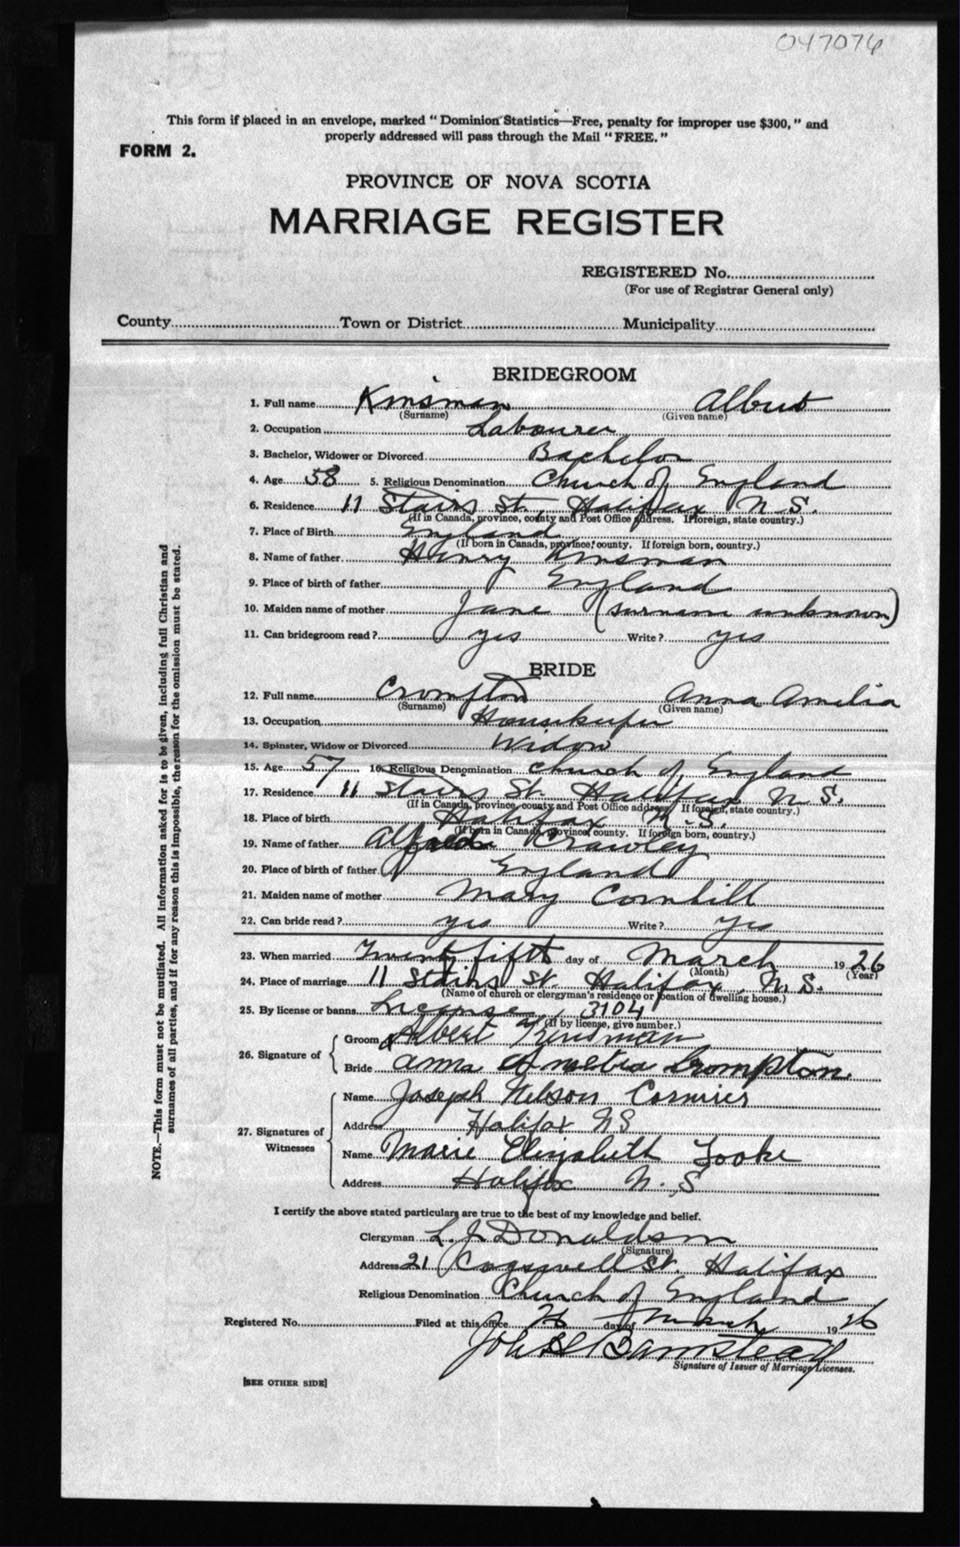 047076
This form if placed in an envelope, marked "Dominion Statistics—Free, penalty for improper use $300," and
properly addressed will pass through the Mail "FREE."
FORM 2.
PROVINCE OF NOVA SCOTIA
MARRIAGE REGISTER
REGISTERED No.
(For use of Registrar General only)
County Town or District Municipality
BRIDEGROOM
1. Full name Kinsman Albert
(Surname) (Given name)
2. Occupation Labourer
3. Bachelor, Widower or Divorced Bachelor
4. Age 58 5. Religious Denomination Church of England
6. Residence 11 Stairs St. Halifax N.S.
(If in Canada, province, county and Post Office address. If foreign, state country.)
7. Place of Birth England
(If born in Canada, province, county. If foreign born, country.)
8. Name of father Henry Kinsman
9. Place of birth of father England
10. Maiden name of mother Jane (surname unknown)
11. Can bridegroom read? yes Write? yes
BRIDE
12. Full name Crompton Anna Amelia
(Surname) (Given name)
13. Occupation Housekeeper
14. Spinster, Widow or Divorced Widow
15. Age 57 16. Religious Denomination Church of England
17. Residence 11 Stairs St. Halifax N.S.
(If in Canada, province, county and Post Office address. If foreign, state country.)
18. Place of birth Halifax N.S.
(If born in Canada, province, county. If foreign born, country.)
19. Name of father Alfred Crawley
20. Place of birth of father England
21. Maiden name of mother Mary Cornhill
22. Can bride read? yes Write? Yes
23. When married Twenty fifth day of March 1926
(Month) (Year)
24. Place of marriage 11 Stairs St. Halifax, N.S.
(Name of church or clergyman's residence or location of dwelling house.)
25. By license or banns License 3104
(If by license, give number.)
26. Signature of
Groom Albert Kinsman
Bride Anna Amelia Crompton
27. Signatures of Witnesses
Name Joseph Nelson Cormier
Address Halifax NS
Name Marie Elizabeth Tooke
Address Halifax N.S
I certify the above stated particulars are true to the best of my knowledge and belief.
Clergyman L. J. Donaldson
(Signature)
Address 21 Cogswell St. Halifax
Religious Denomination Church of England
Registered No. Filed at this office 26 day of March 1926
John H Barnstead
Signature of Issuer of Marriage Licenses.
[SEE OTHER SIDE]
NOTE.—This form must not be mutilated. All information asked for is to be given, including full Christian and
surnames of all parties, and if for any reason this is impossible, the reason for the omission must be stated.